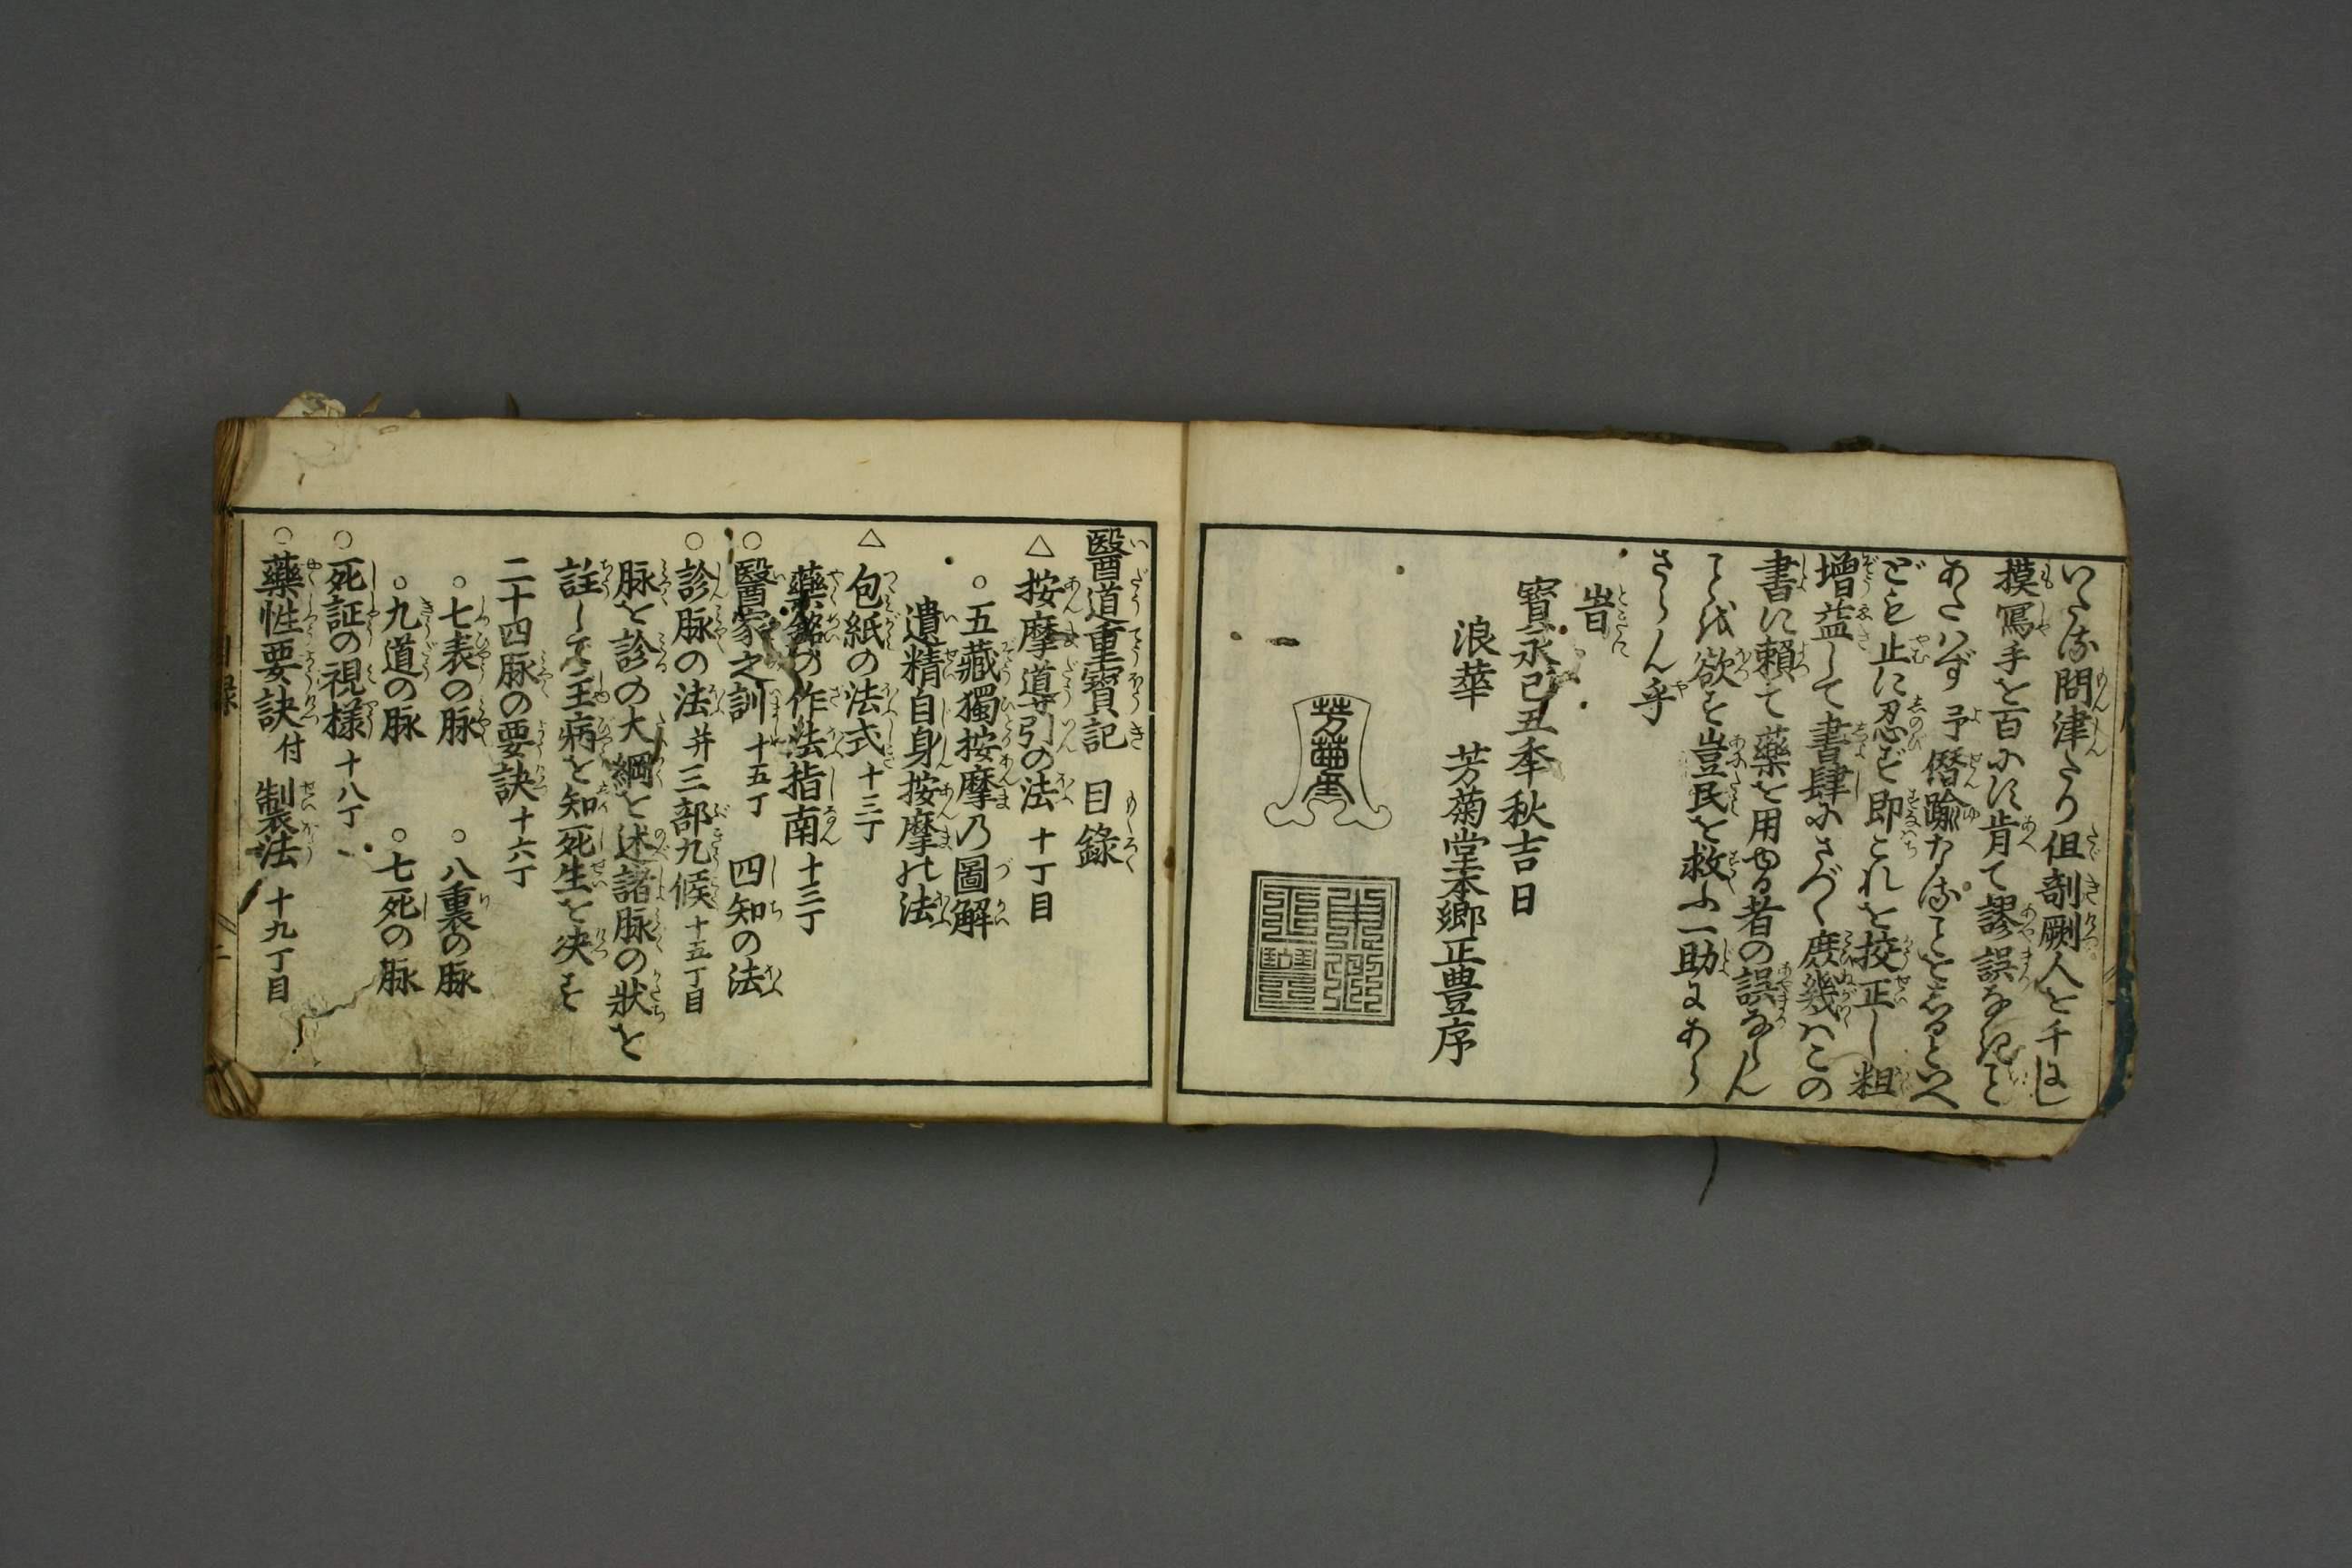 いたる問津たり但剞劂人を千にし
摸寫手を百にす肯て謬誤なきこと
あたはず予僭踰たることをしるといへ
ども止に忍ず即これを挍正し粗
増益して書肆にさづく庶幾はこの
書に頼て藥を用ゆる者の誤なからん
ことを欲す豈民を救ふ一助にあら
ざらん乎
旹
寳永己丑季秋吉日
浪華 芳菊堂本郷正豊序
芳菊堂
醫道重寳記 目錄
△按摩導引の法 十丁目
○五藏獨按摩乃圖解
遺精自身按摩の法
△包紙の法式 十三丁
藥銘の作法指南 十三丁
○醫家之訓 十五丁 四知の法
○診脉の法 并三部九候 十五丁目
脉を診の大綱を述諸脉の狀を
註して主病を知死生を决す
二十四脉の要訣 十六丁
○七表の脉 ○八裏の脉
○九道の脉 ○七死の脉
○死証の視樣 十八丁
○藥性要訣 付 制製法 十九丁目
目録